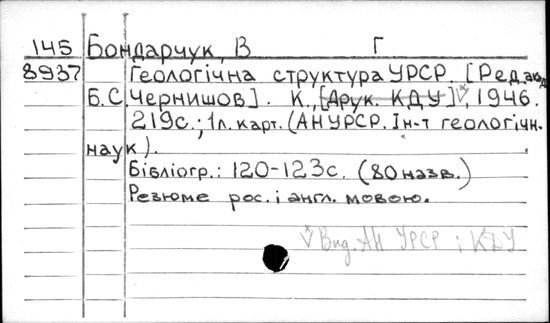 145 Бондарчук, В Г
8937 Геологічна структура УРСР. [Ред. акад.
Б.С.Чернишов]. К., [Друк. КДУ]√, 1946.
219с.; 1л. карт. (АН УРСР. Ін-т геологічн.
наук).
Бібліогр.: 120-123с. (80 назв.)
Резюме рос. і англ. мовою.
√ Вид. АН УРСР і КДУ